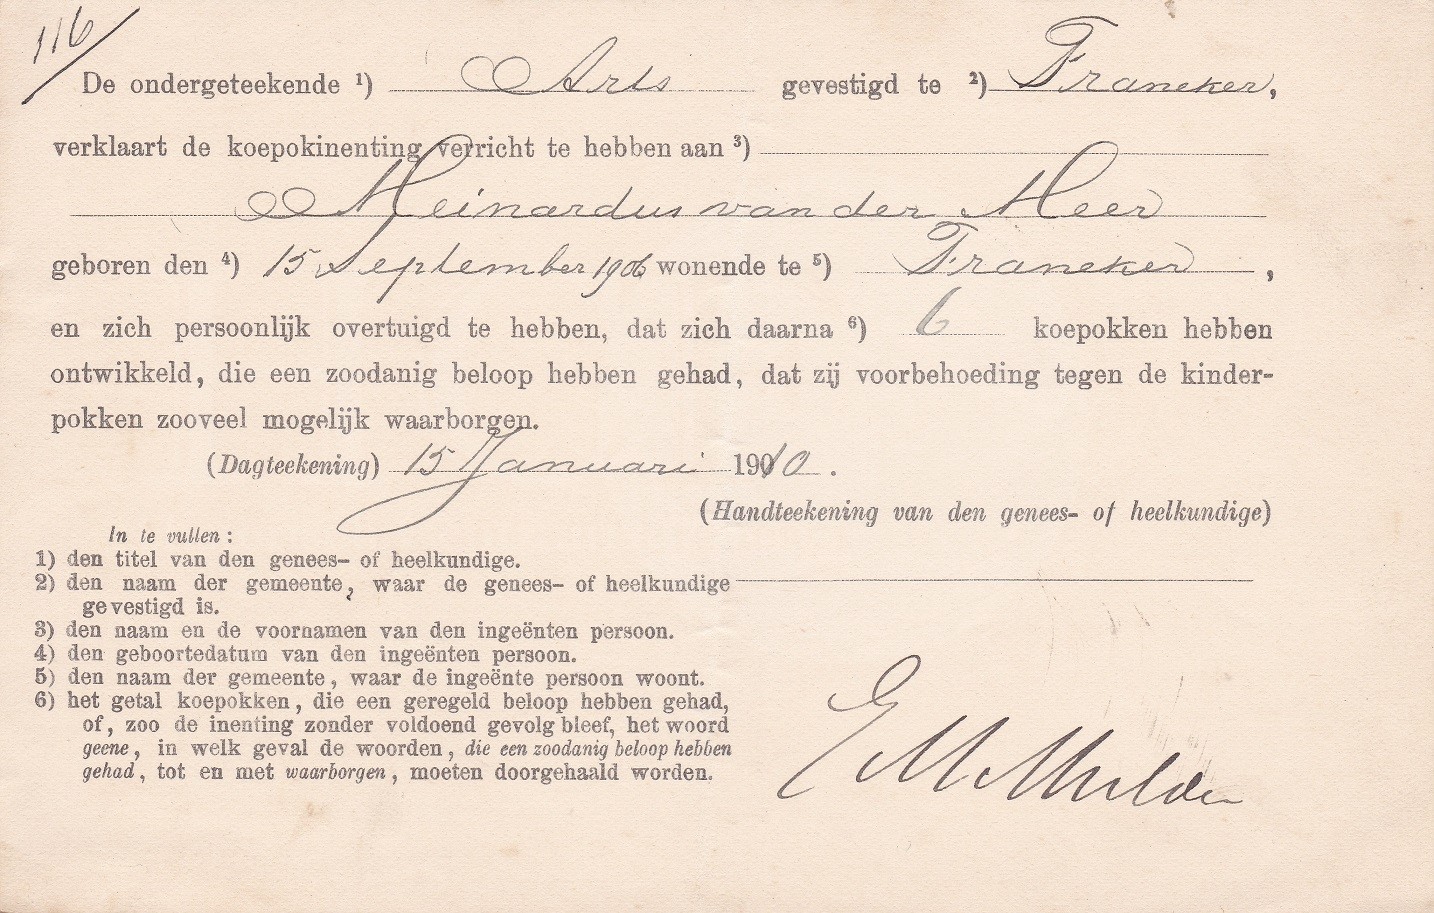 116
De ondergeteekende ¹) Arts gevestigd te ²) Franeker,
verklaart de koepokinenting verricht te hebben aan ³)
Meinardus van der Meer
geboren den ⁴) 15 September 1906 wonende te ⁵) Franeker,
en zich persoonlijk overtuigd te hebben, dat zich daarna ⁶) 6 koepokken hebben
ontwikkeld, die een zoodanig beloop hebben gehad, dat zij voorbehoeding tegen de kinder-
pokken zooveel mogelijk waarborgen.
(Dagteekening) 15 Januari 1910.
(Handteekening van den genees- of heelkundige)
In te vullen:
1) den titel van den genees- of heelkundige.
2) den naam der gemeente, waar de genees- of heelkundige
gevestigd is.
3) den naam en de voornamen van den ingeënten persoon.
4) den geboortedatum van den ingeënten persoon.
5) den naam der gemeente, waar de ingeënte persoon woont.
6) het getal koepokken, die een geregeld beloop hebben gehad,
of, zoo de inenting zonder voldoend gevolg bleef, het woord
geene, in welk geval de woorden, die een zoodanig beloop hebben
gehad, tot en met waarborgen, moeten doorgehaald worden.
E M Mulder